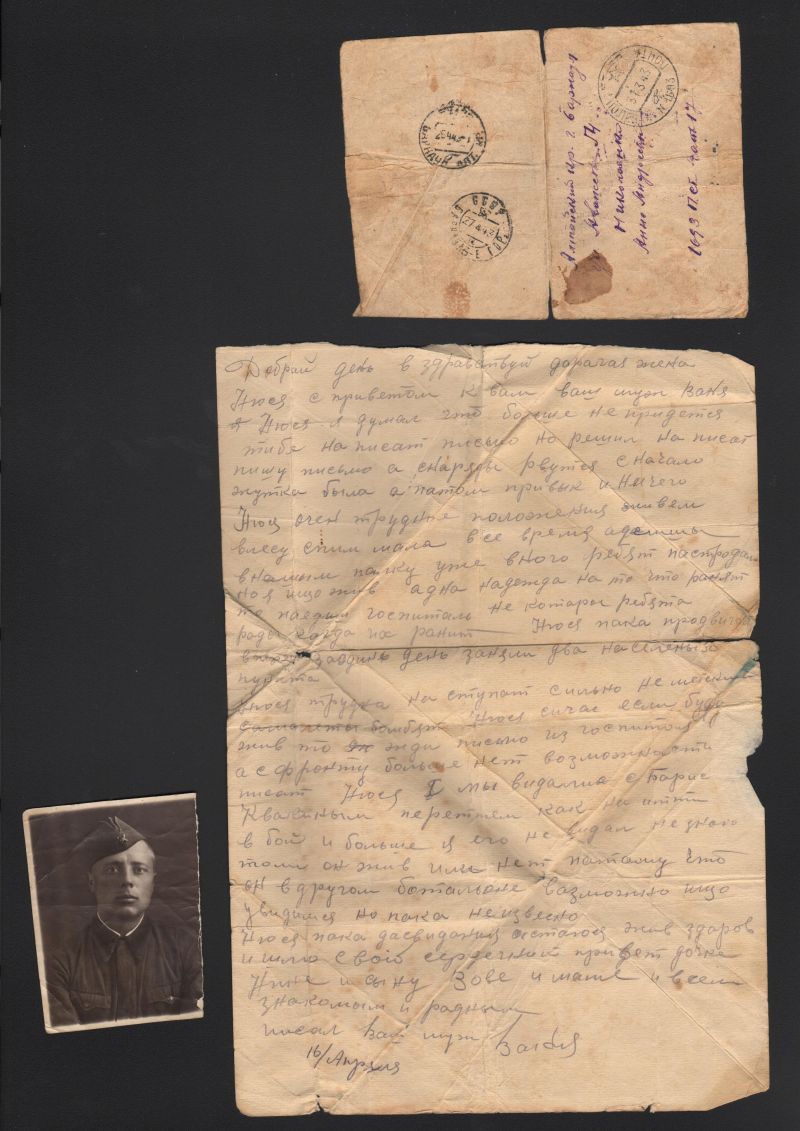 Алтайский кр. г. Барнаул
Николаевна
Анна Андреевна
1693 ПСБ част 17
31.3.43
БАРНАУЛ
СССР
27.4.43
Добрай день в здравствуй дарагая жена
Нюся с приветом к вам ваш муж Ваня
Нюся я думал что больше не придется
тибе на писат письмо но решил на писат
пишу письмо а снаряды рвутся с начало
жутка была а патом привык и ничего
Нюся очен трудные положения живем
влесу спим мала все время
внашым палку уже много ребят пастрадали
но я ищо жив адна надежда на то что ранят
то паедим госпиталь не которы ребята
рады когда их ранит Нюся пака продвигаи
заодинь день заняли два населеных
пункта
Нюся трудна на ступат сильно немецкии
самалеты бомбят Нюся сичас если буду
жив то жди письмо из госпиталя
а с фронту больше нет возможности
писат Нюся мы видались с Барис
Квакиным переттем как на итти
в бой и больше я его не видал не знаю
толи он жив или нет патаму что
он в другом батальоне возможно ищо
увидимся но пака неизвесно
Нюся пака дасвидания астаюся жив здаров
и шлю свой сердечный привет дочке
Нине и сыну Вове и маме и всем
знакомым и радным
писал ваш муж Ваня
16/Апреля